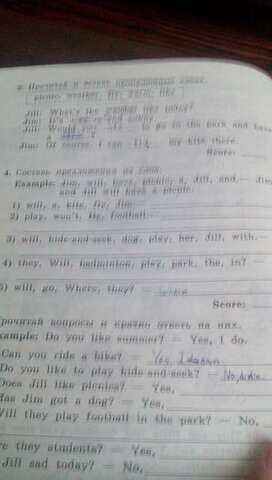 3. Прочитай и вставь пропущенные слова.
picnic, weather, fly, warm, like
Jill: What's the weather like today?
Jim: It's warm and sunny.
Jill: Would you like to go to the park and have
a
Jim: Of course. I can fly my kite there.
Score:
4. Составь предложения из слов.
Example: Jim, will, have, picnic, a, Jill, and. — Jim
and Jill will have a picnic.
1) will, a, kite, fly, Jim
2) play, won't, He, football.
3) will, hide-and-seek, dog, play, her, Jill, with. —
4) they, Will, badminton, play, park, the, in? —
5) will, go, Where, they? —
Score:
Прочитай вопросы и кратко ответь на них.
Example: Do you like summer? — Yes, I do.
Can you ride a bike? — Yes, I
Do you like to play hide-and-seek? — No,
Does Jill like picnics? — Yes,
Has Jim got a dog? — Yes,
Will they play football in the park? — No,
Are they students? — Yes,
Jill sad today? — No,